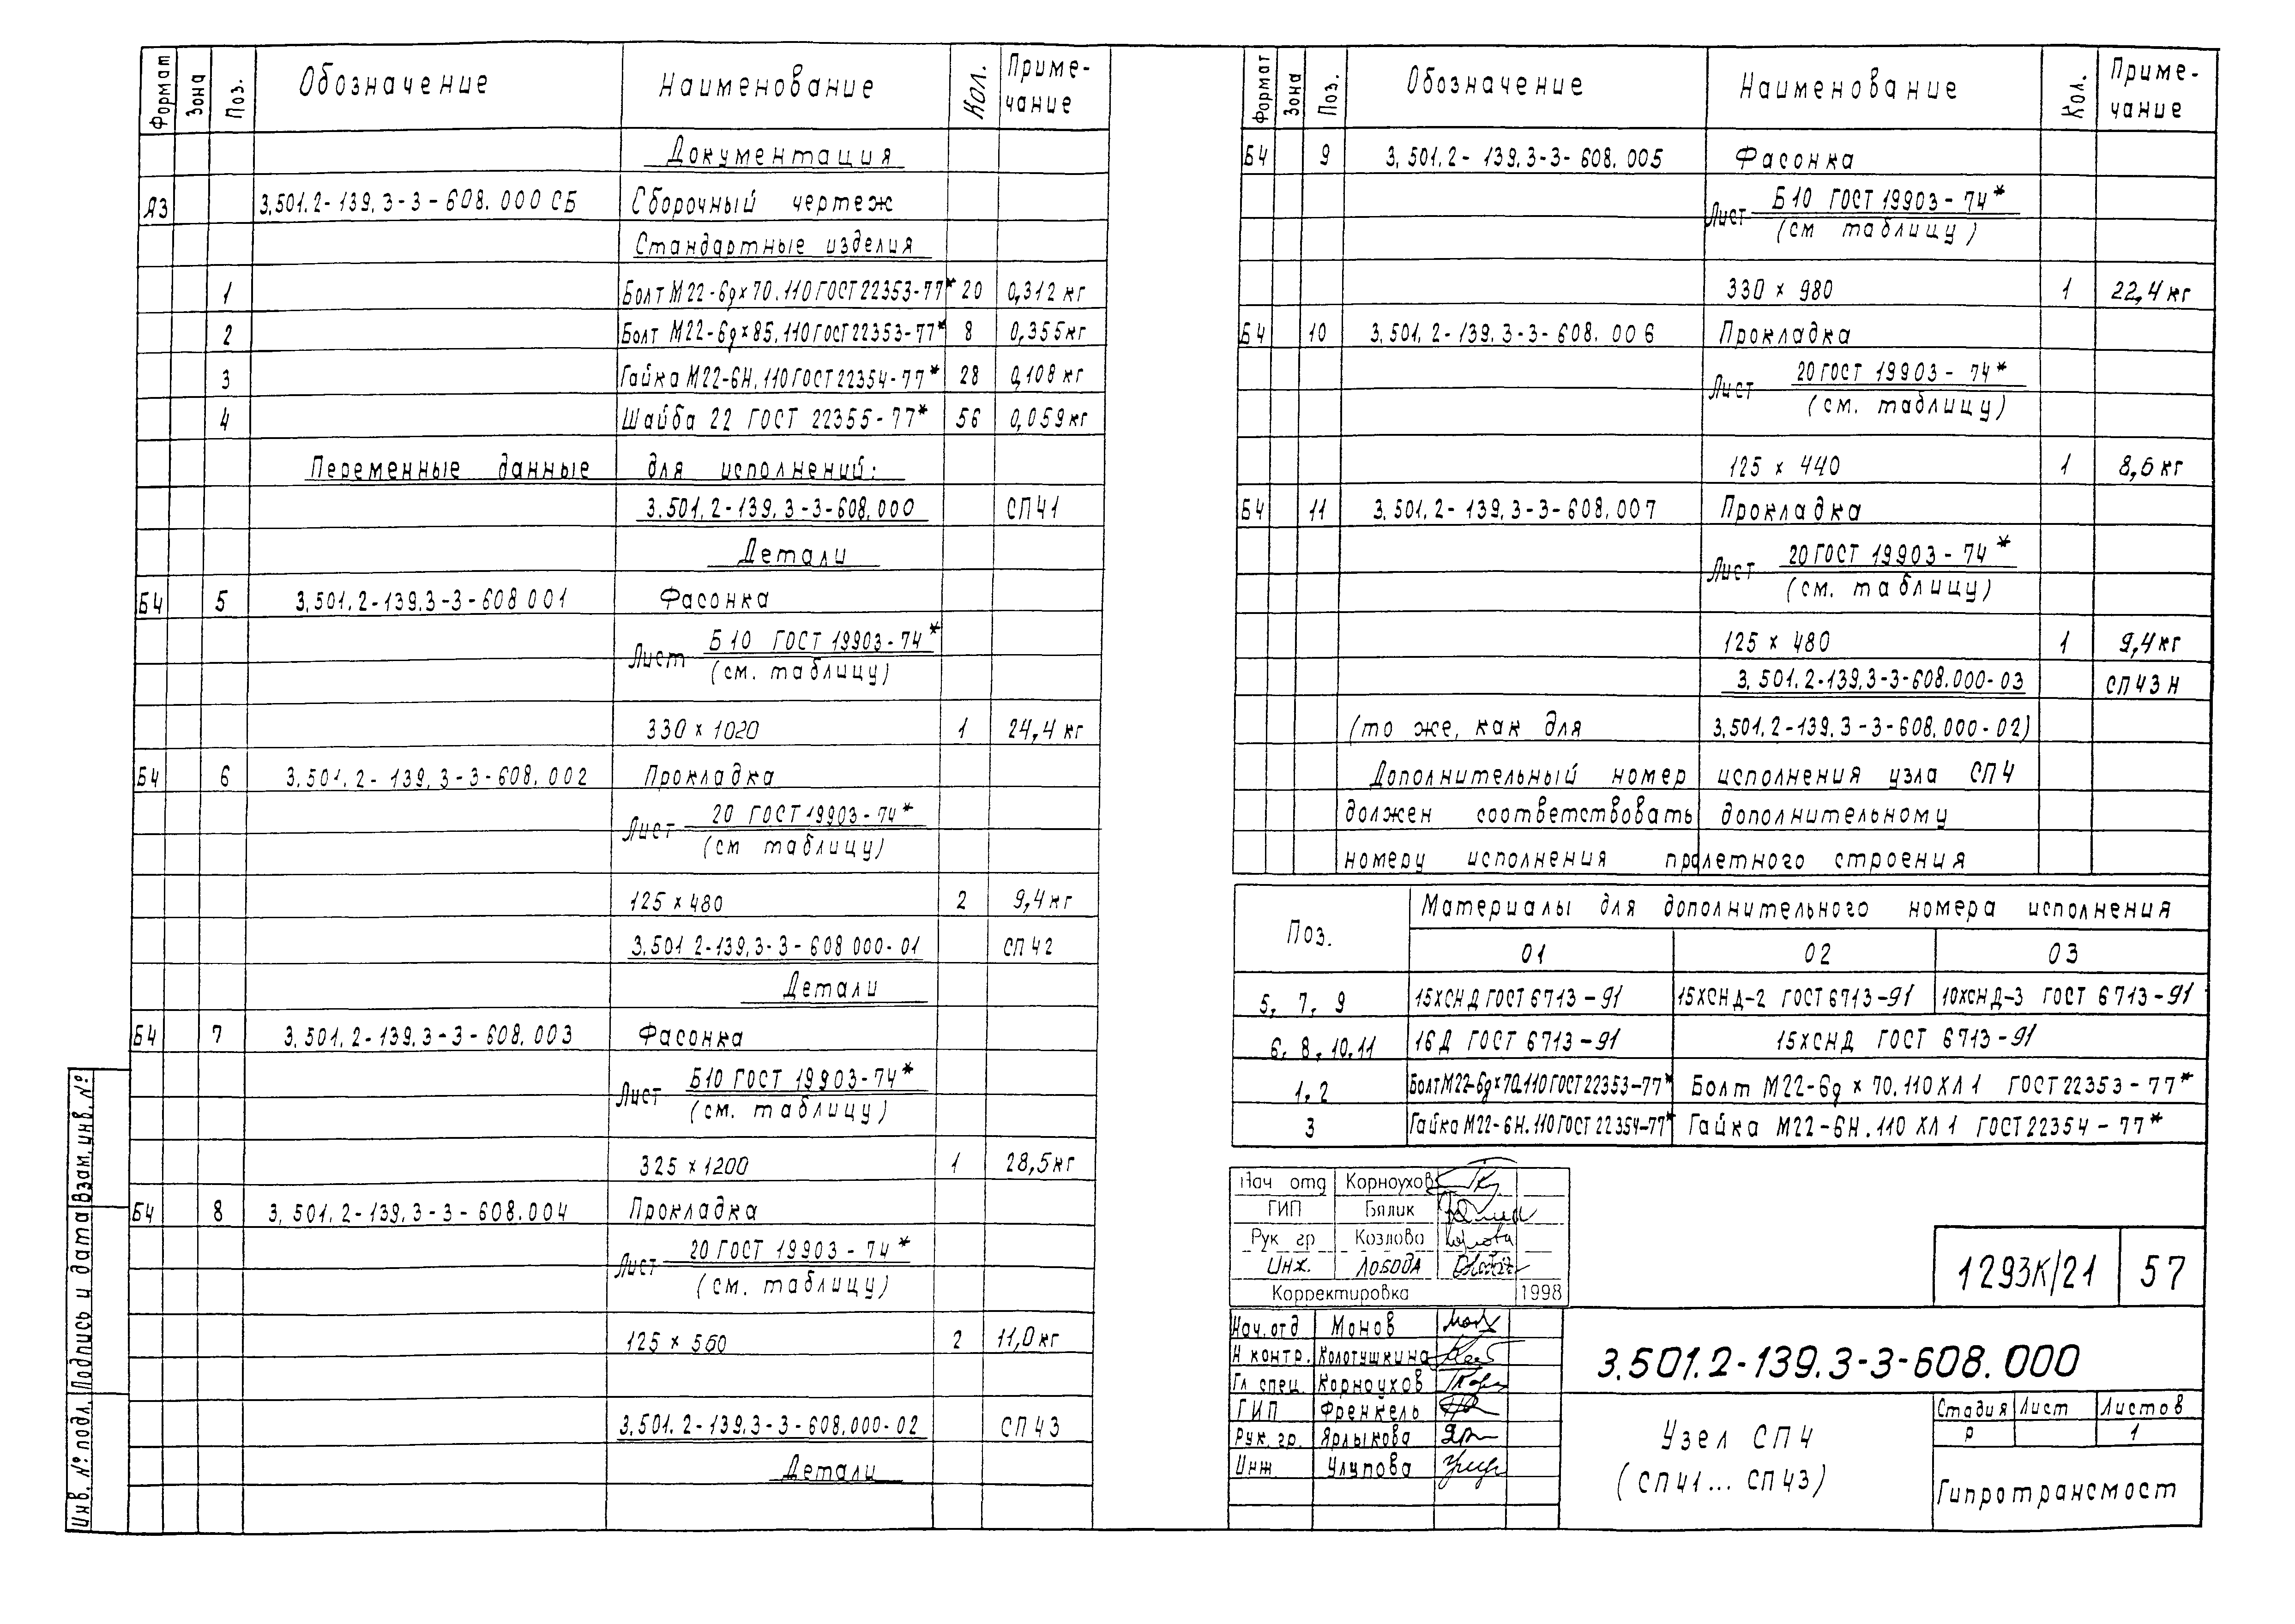 Формат Зона Поз. Обозначение Наименование Кол. Приме-
чание
Документация
А3 3.501.2-139.3-3-608.000 СБ Сборочный чертеж
Стандартные изделия
1 Болт М22-6gх70.110 ГОСТ 22353-77* 20 0,312 кг
2 Болт М22-6gх85.110 ГОСТ 22353-77* 8 0,355кг
3 Гайка М22-6Н.110 ГОСТ 22354-77* 28 0,108 кг
4 Шайба 22 ГОСТ 22355-77* 56 0,059кг
Переменные данные для исполнений:
3.501.2-139.3-3-608.000 СП41
Детали
Б4 5 3.501.2-139.3-3-608 001 Фасонка
Лист Б10 ГОСТ 19903-74*
(см. таблицу)
330 х 1020 1 24,4 кг
Б4 6 3.501.2-139.3-3-608.002 Прокладка
Лист 20 ГОСТ 19903-74*
(см таблицу)
125 х 480 2 9,4 кг
3.501 2-139.3-3-608 000-01 СП 42
Детали
Б4 7 3.501.2-139.3-3-608.003 Фасонка
Лист Б10 ГОСТ 19903-74*
(см. таблицу)
325 х 1200 1 28,5кг
Б4 8 3.501.2-139.3-3-608.004 Прокладка
Лист 20 ГОСТ 19903-74*
(см. таблицу)
125 х 560 2 11,0 кг
3.501.2-139.3-3-608.000-02 СП 43
Детали
Инв. № подл. Подпись и дата Взам. инв. №
Формат Зона Поз. Обозначение Наименование Кол. Приме-
чание
Б4 9 3.501.2-139.3-3-608.005 Фасонка
Лист Б10 ГОСТ 19903-74*
(см таблицу)
330 х 980 1 22,4 кг
Б4 10 3.501.2-139.3-3-608.006 Прокладка
Лист 20 ГОСТ 19903-74*
(см. таблицу)
125 х 440 1 8,6 кг
Б4 11 3.501.2-139.3-3-608.007 Прокладка
Лист 20 ГОСТ 19903-74*
(см. таблицу)
125 х 480 1 9,4 кг
3.501.2-139.3-3-608.000-03 СП 43 Н
(то же, как для 3.501.2-139.3-3-608.000-02)
Дополнительный номер исполнения узла СП4
должен соответствовать дополнительному
номеру исполнения пролетного строения
Поз. Материалы для дополнительного номера исполнения
01 02 03
5, 7, 9 15ХСНД ГОСТ 6713-91 15ХСНД-2 ГОСТ 6713-91 10ХСНД-3 ГОСТ 6713-91
6, 8, 10, 11 16Д ГОСТ 6713-91 15ХСНД ГОСТ 6713-91
1, 2 Болт М22-6gх70.110 ГОСТ 22353-77* Болт М22-6g х 70.110 ХЛ1 ГОСТ 22353-77*
3 Гайка М22-6Н.110 ГОСТ 22354-77* Гайка М22-6Н.110 ХЛ1 ГОСТ 22354-77*
Нач отд Корноухов
ГИП Бялик
Рук гр Козлова
Инж. Лобода
Корректировка 1998
1293К/21 57
Нач. отд Монов
Н контр. Колотушкина
Гл спец. Корноухов
ГИП Френкель
Рук. гр. Ярлыкова
Инж Улупова
3.501.2-139.3-3-608.000
Узел СП4
(СП41... СП43)
Стадия Лист Листов
Р 1
Гипротрансмост